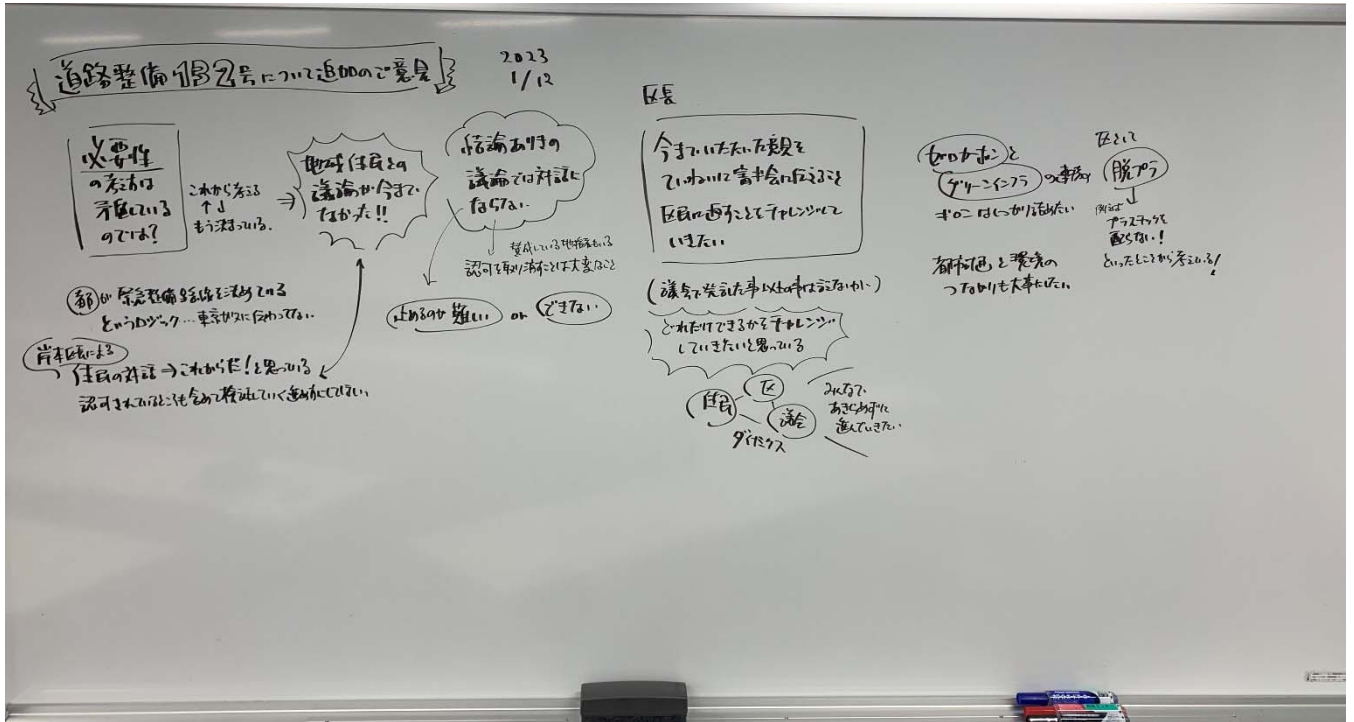 道路整備132号について追加のご意見
2023
1/12
必要性
の考え方は
矛盾している
のでは?
これから考える
↑↓
もう決まっている.
⇒
地域住民との
議論が今まで
なかった!!
結論ありきの
議論では対話に
ならない
賛成している地権者もいる
認可を取り消すことは大変なこと
止めるのが難しい or できない
都が緊急整備路線を決めている
というロジック…東京ガスに伝わってない.
岸本区長による
住民の対話→これからだ!と思っている
認可されているところも含めて検証していく進め方にしてほしい.
区長
今までいただいた意見を
ていねいに審議会に伝えること
区民に返すことをチャレンジして
いきたい
(議会で発言した事以外の事は言えないが)
どれだけできるかをチャレンジ
していきたいと思っている
区
住民
議会
ダイナミクス
みんなで
あきらめずに
進んでいきたい
ゼロカーボンと
グリーンインフラの
はしっかり詰めたい
都市計画と環境の
つながりも大事にしたい
区として
脱プラ
例えば
プラスチックを
配らない!
といったところから考えている!